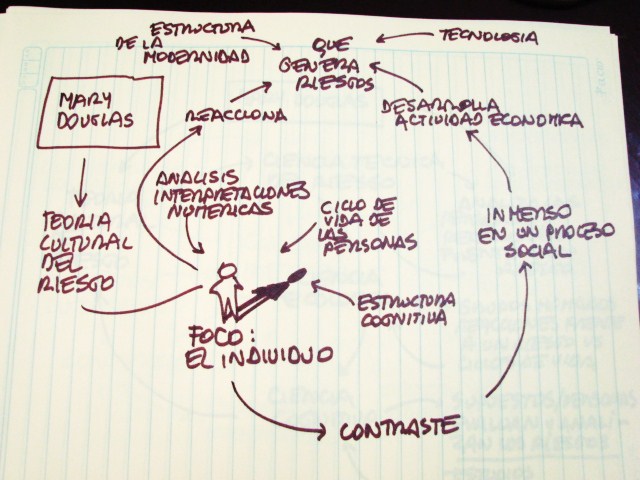 ESTRUCTURA
DE LA
MODERNIDAD
QUE
GENERA
RIESGOS
TECNOLOGIA
MARY
DOUGLAS
REACCIONA
DESARROLLA
ACTIVIDAD ECONOMICA
ANALISIS
INTERPRETACIONES
NUMERICAS
CICLO DE
VIDA DE
LAS
PERSONAS
TEORIA
CULTURAL
DEL
RIESGO
INMERSO
EN UN PROCESO
SOCIAL
ESTRUCTURA
COGNITIVA
FOCO:
EL INDIVIDUO
CONTRASTE